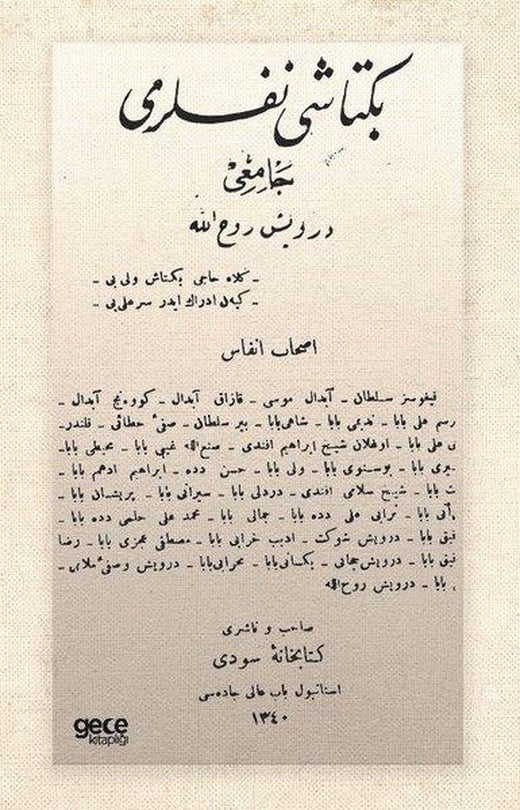 بكتاشی نفسلری
جَامِعِیْ
درویش روح الله
ـ كلاه حاجی بكتاش ولی یی ـ
ـ كیهن ادراك ایدر سر علی یی ـ
اصحاب انفاس
قیغوسز سلطان ـ آبدال موسی ـ قازاق آبدال ـ كوونج آبدال ـ
رسم علی بابا ـ ندیمی بابا ـ شاهی بابا ـ پیر سلطان ـ صفیء خطائی ـ قلندر ـ
ی علی بابا ـ اوغلان شیخ ابراهیم افندی ـ صنع الله غیبی بابا ـ محیطی بابا ـ
ـیری بابا ـ بوسنوی بابا ـ ولی بابا ـ حسن دده ـ ابراهیم ادهم بابا ـ
ت بابا ـ شیخ سلامی افندی ـ دردلی بابا ـ سیرانی بابا ـ پریشان بابا ـ
بابا ـ ترابی علی دده بابا ـ جمالی بابا ـ محمد علی حلمی دده بابا ـ
فیق بابا ـ درویش شوكت ـ ادیب خرابی بابا ـ مصطفی عجزی بابا ـ رضا
فیق بابا ـ درویش جهانی ـ یكسانی بابا ـ بحرابی بابا ـ درویش وصفیء ملامی ـ
بابا ـ درویش روح الله
صاحب و ناشری
كتابخانهٔ سودی
استانبول باب عالی جاده سی
١٣٤٠
gece
kitaplığı